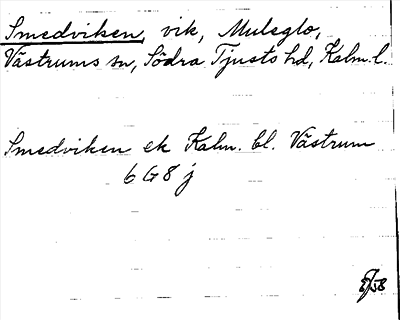 Smedviken, vik, Mulsglo,
Västrums sn, Södra Tjusts hd, Kalm. l.
Smedviken ek Kalm. bl. Västrum
6 G 8 j